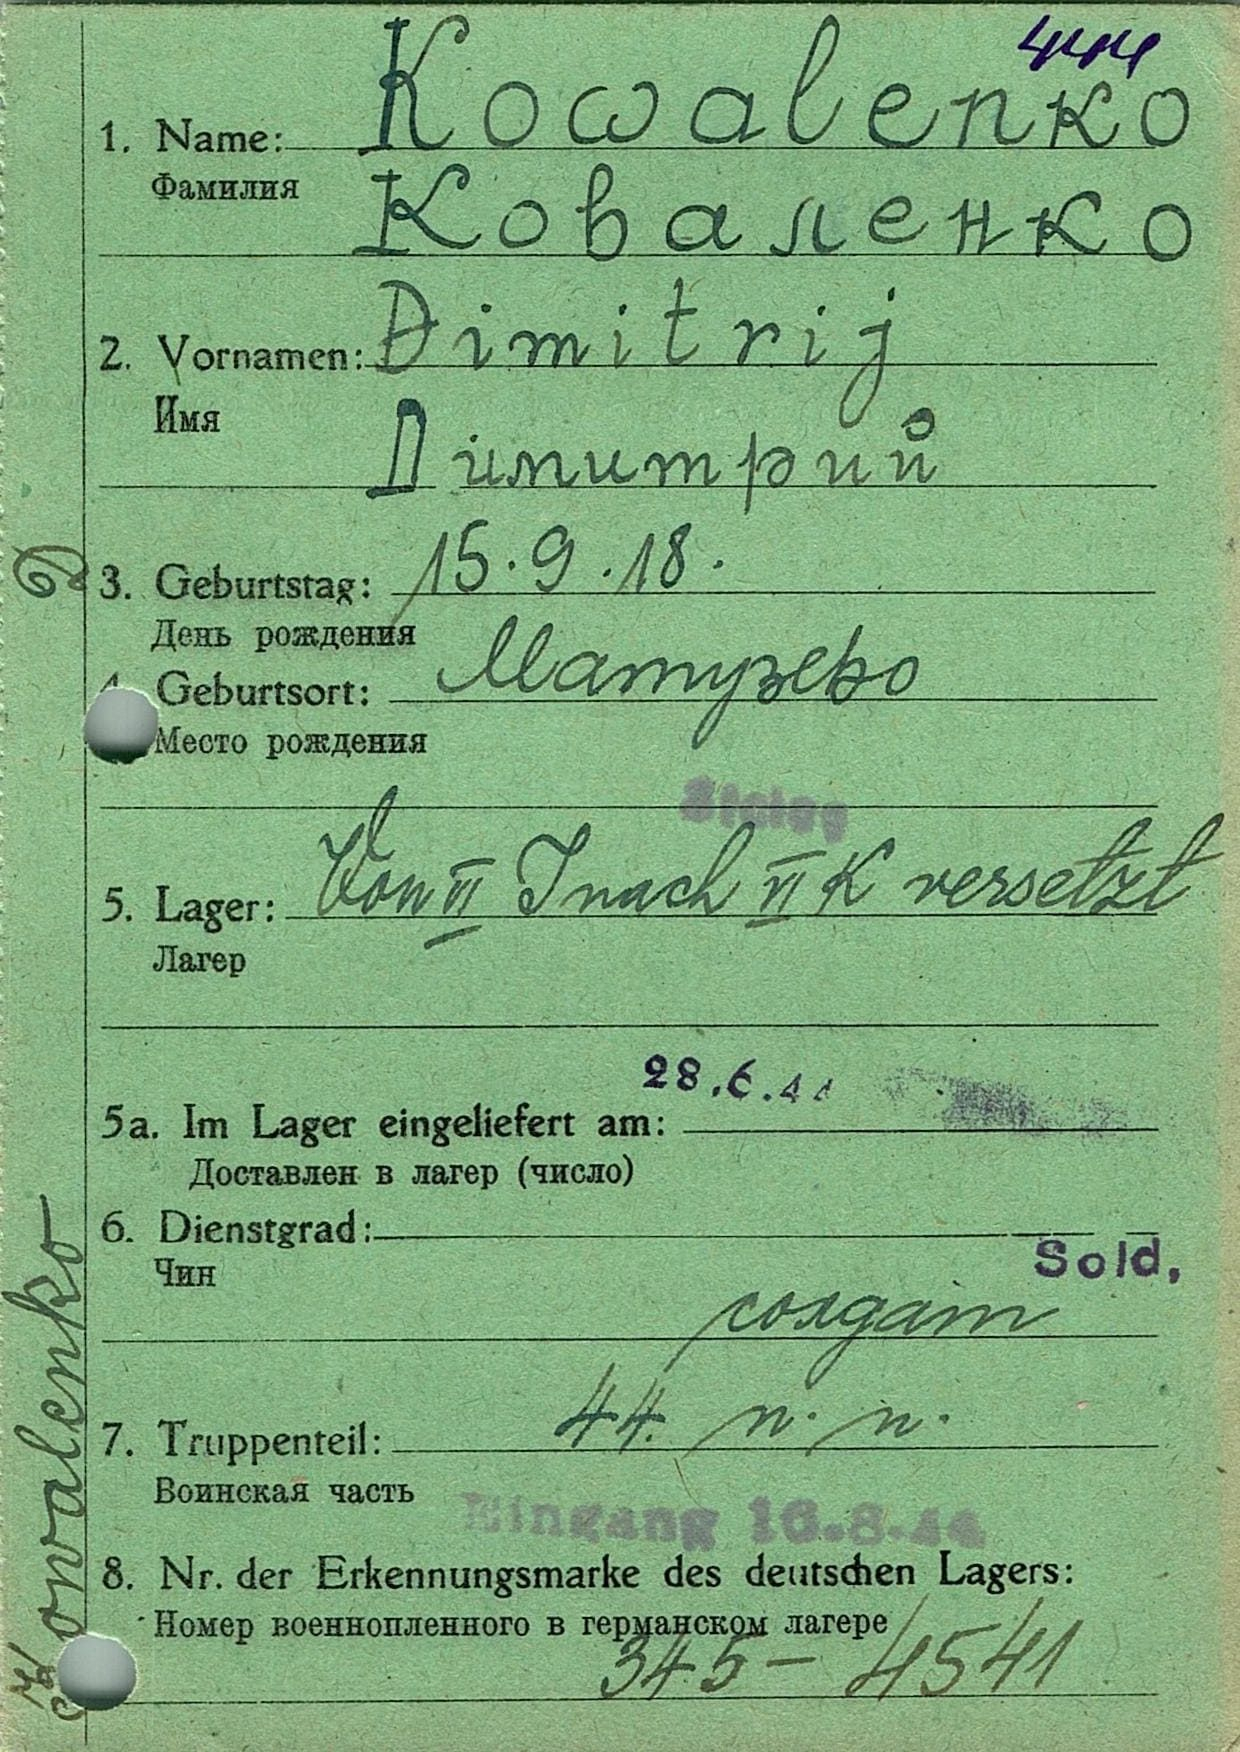 1. Name: Kowalenko
Фамилия Коваленко
2. Vornamen: Dimitrij
Имя
Димитрий
3. Geburtstag: 15.9.18.
День рождения
Geburtsort:
Место рождения
Stalag
5. Lager: Von VI J nach VI K versetzt
Лагер
28.6.44
5a. Im Lager eingeliefert am:
Доставлен в лагер (число)
6. Dienstgrad:
Sold,
Чин
солдат
7. Truppenteil: 44. п. п.
Воинская часть
Eingang 16.8.44
8. Nr. der Erkennungsmarke des deutschen Lagers:
Номер военнопленного в германском лагере
345-4541
Kowalenko